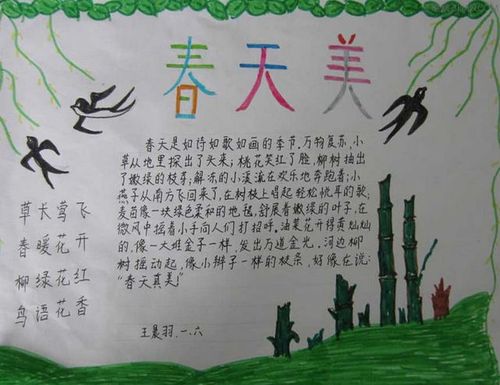 春天美
春天是如诗如歌如画的季节,万物复苏,小
草从地里探出了头来;桃花笑红了脸,柳树抽出
了嫩绿的枝芽;解冻的小溪流在欢乐地奔跑着;小
燕子从南方飞回来了,在树枝上唱起轻松悦耳的歌;
麦苗像一块绿色柔和的地毯,舒展着嫩绿的叶子,在
微风中摇着小手向人们打招呼。油菜花开得黄灿灿
的,像一大堆金子一样,发出万道金光。河边柳
树摇动起,像小辫子一样的枝条,好像在说:
“春天真美!”
草长莺飞
春暖花开
柳绿花红
鸟语花香
王晨羽.一.六